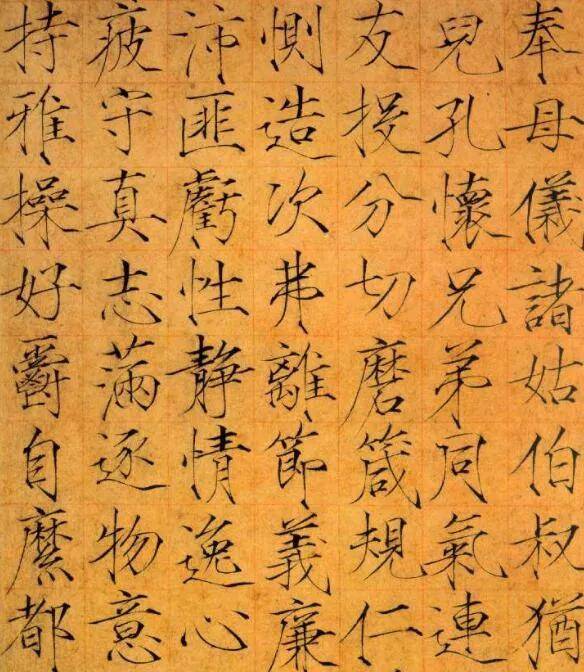 奉母儀諸姑伯叔猶
兒孔懷兄弟同氣連
友投分切磨箴規仁
惻造次弗離節義廉
沛匪虧性靜情逸心
疲守真志滿逐物意
持雅操好爵自縻都